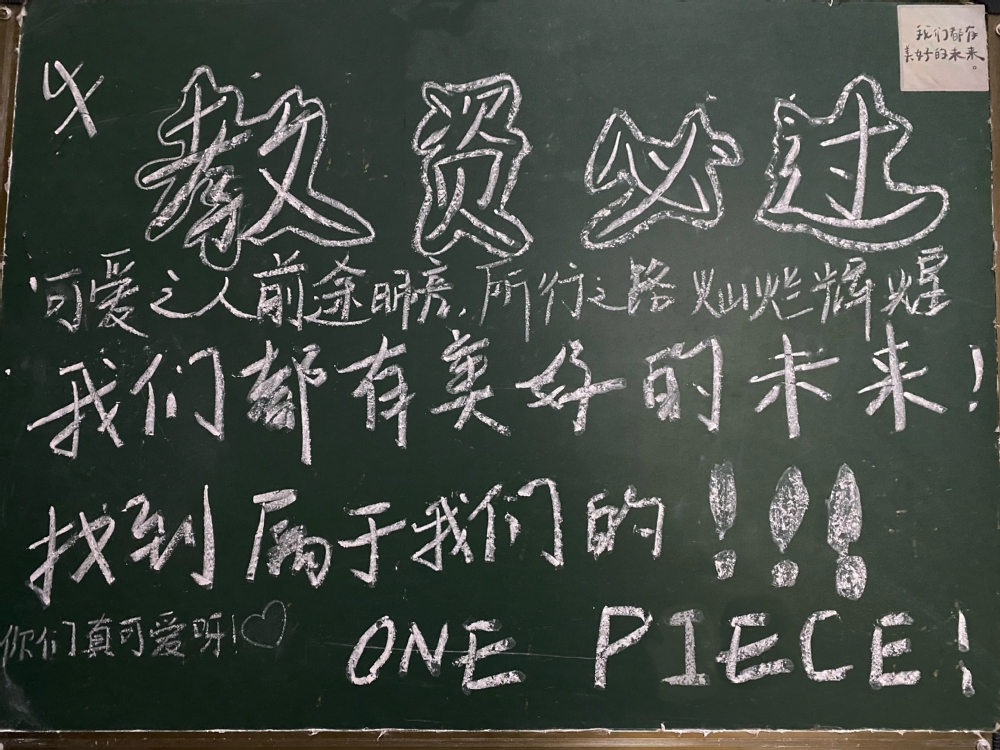 我们都有
美好的未来。
4
教资必过
可爱之人前途明亮,所行之路灿烂辉煌
我们都有美好的未来!
找到属于我们的!!!
你们真可爱呀!♡
ONE PIECE!